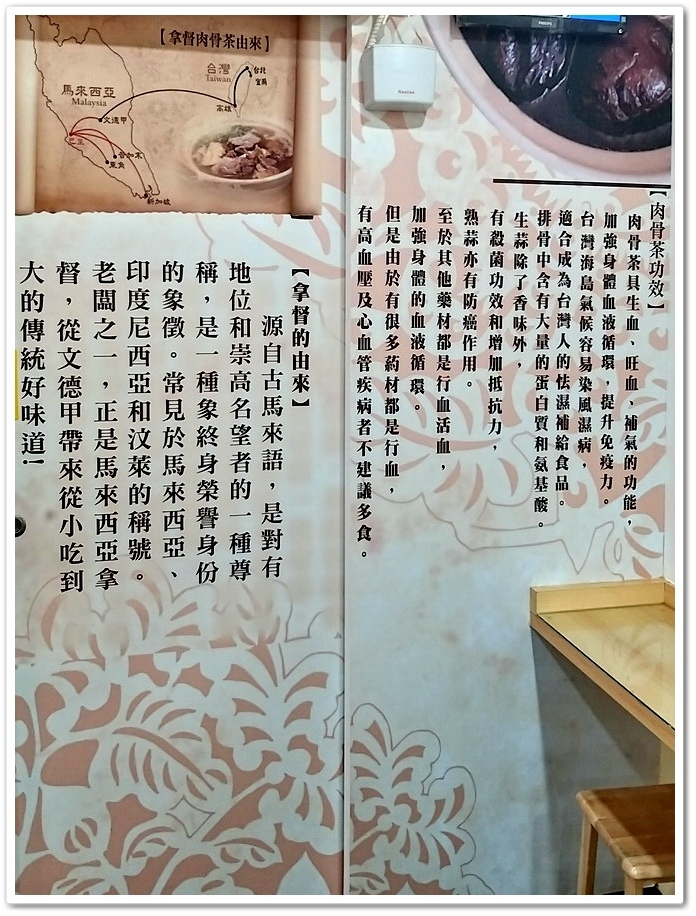 【拿督肉骨茶由來】
台灣
Taiwan
台北
宜蘭
高雄
馬來西亞
Malaysia
文德甲
巴生
麻六甲
新加坡
PHILIPS
【肉骨茶功效】
肉骨茶具生血、旺血、補氣的功能，
加強身體血液循環，提升免疫力。
台灣海島氣候容易染風濕病，
適合成為台灣人的怯濕補給食品。
排骨中含有大量的蛋白質和氨基酸。
生蒜除了香味外，
有殺菌功效和增加抵抗力，
熟蒜亦有防癌作用。
至於其他藥材都是行血活血，
加強身體的血液循環。
但是由於有很多葯材都是行血，
有高血壓及心血管疾病者不建議多食。
【拿督的由來】
源自古馬來語，是對有
地位和崇高名望者的一種尊
稱，是一種象終身榮譽身份
的象徵。常見於馬來西亞、
印度尼西亞和汶萊的稱號。
老闆之一，正是馬來西亞拿
督，從文德甲帶來從小吃到
大的傳統好味道!